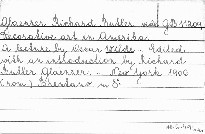 Glaenzer Richard Butler
Decorative art in Amerika.
A lecture by Oscar Wilde. Edited
with an introduction by Richard
Butler Glaenzer. New York 1906
Brentano